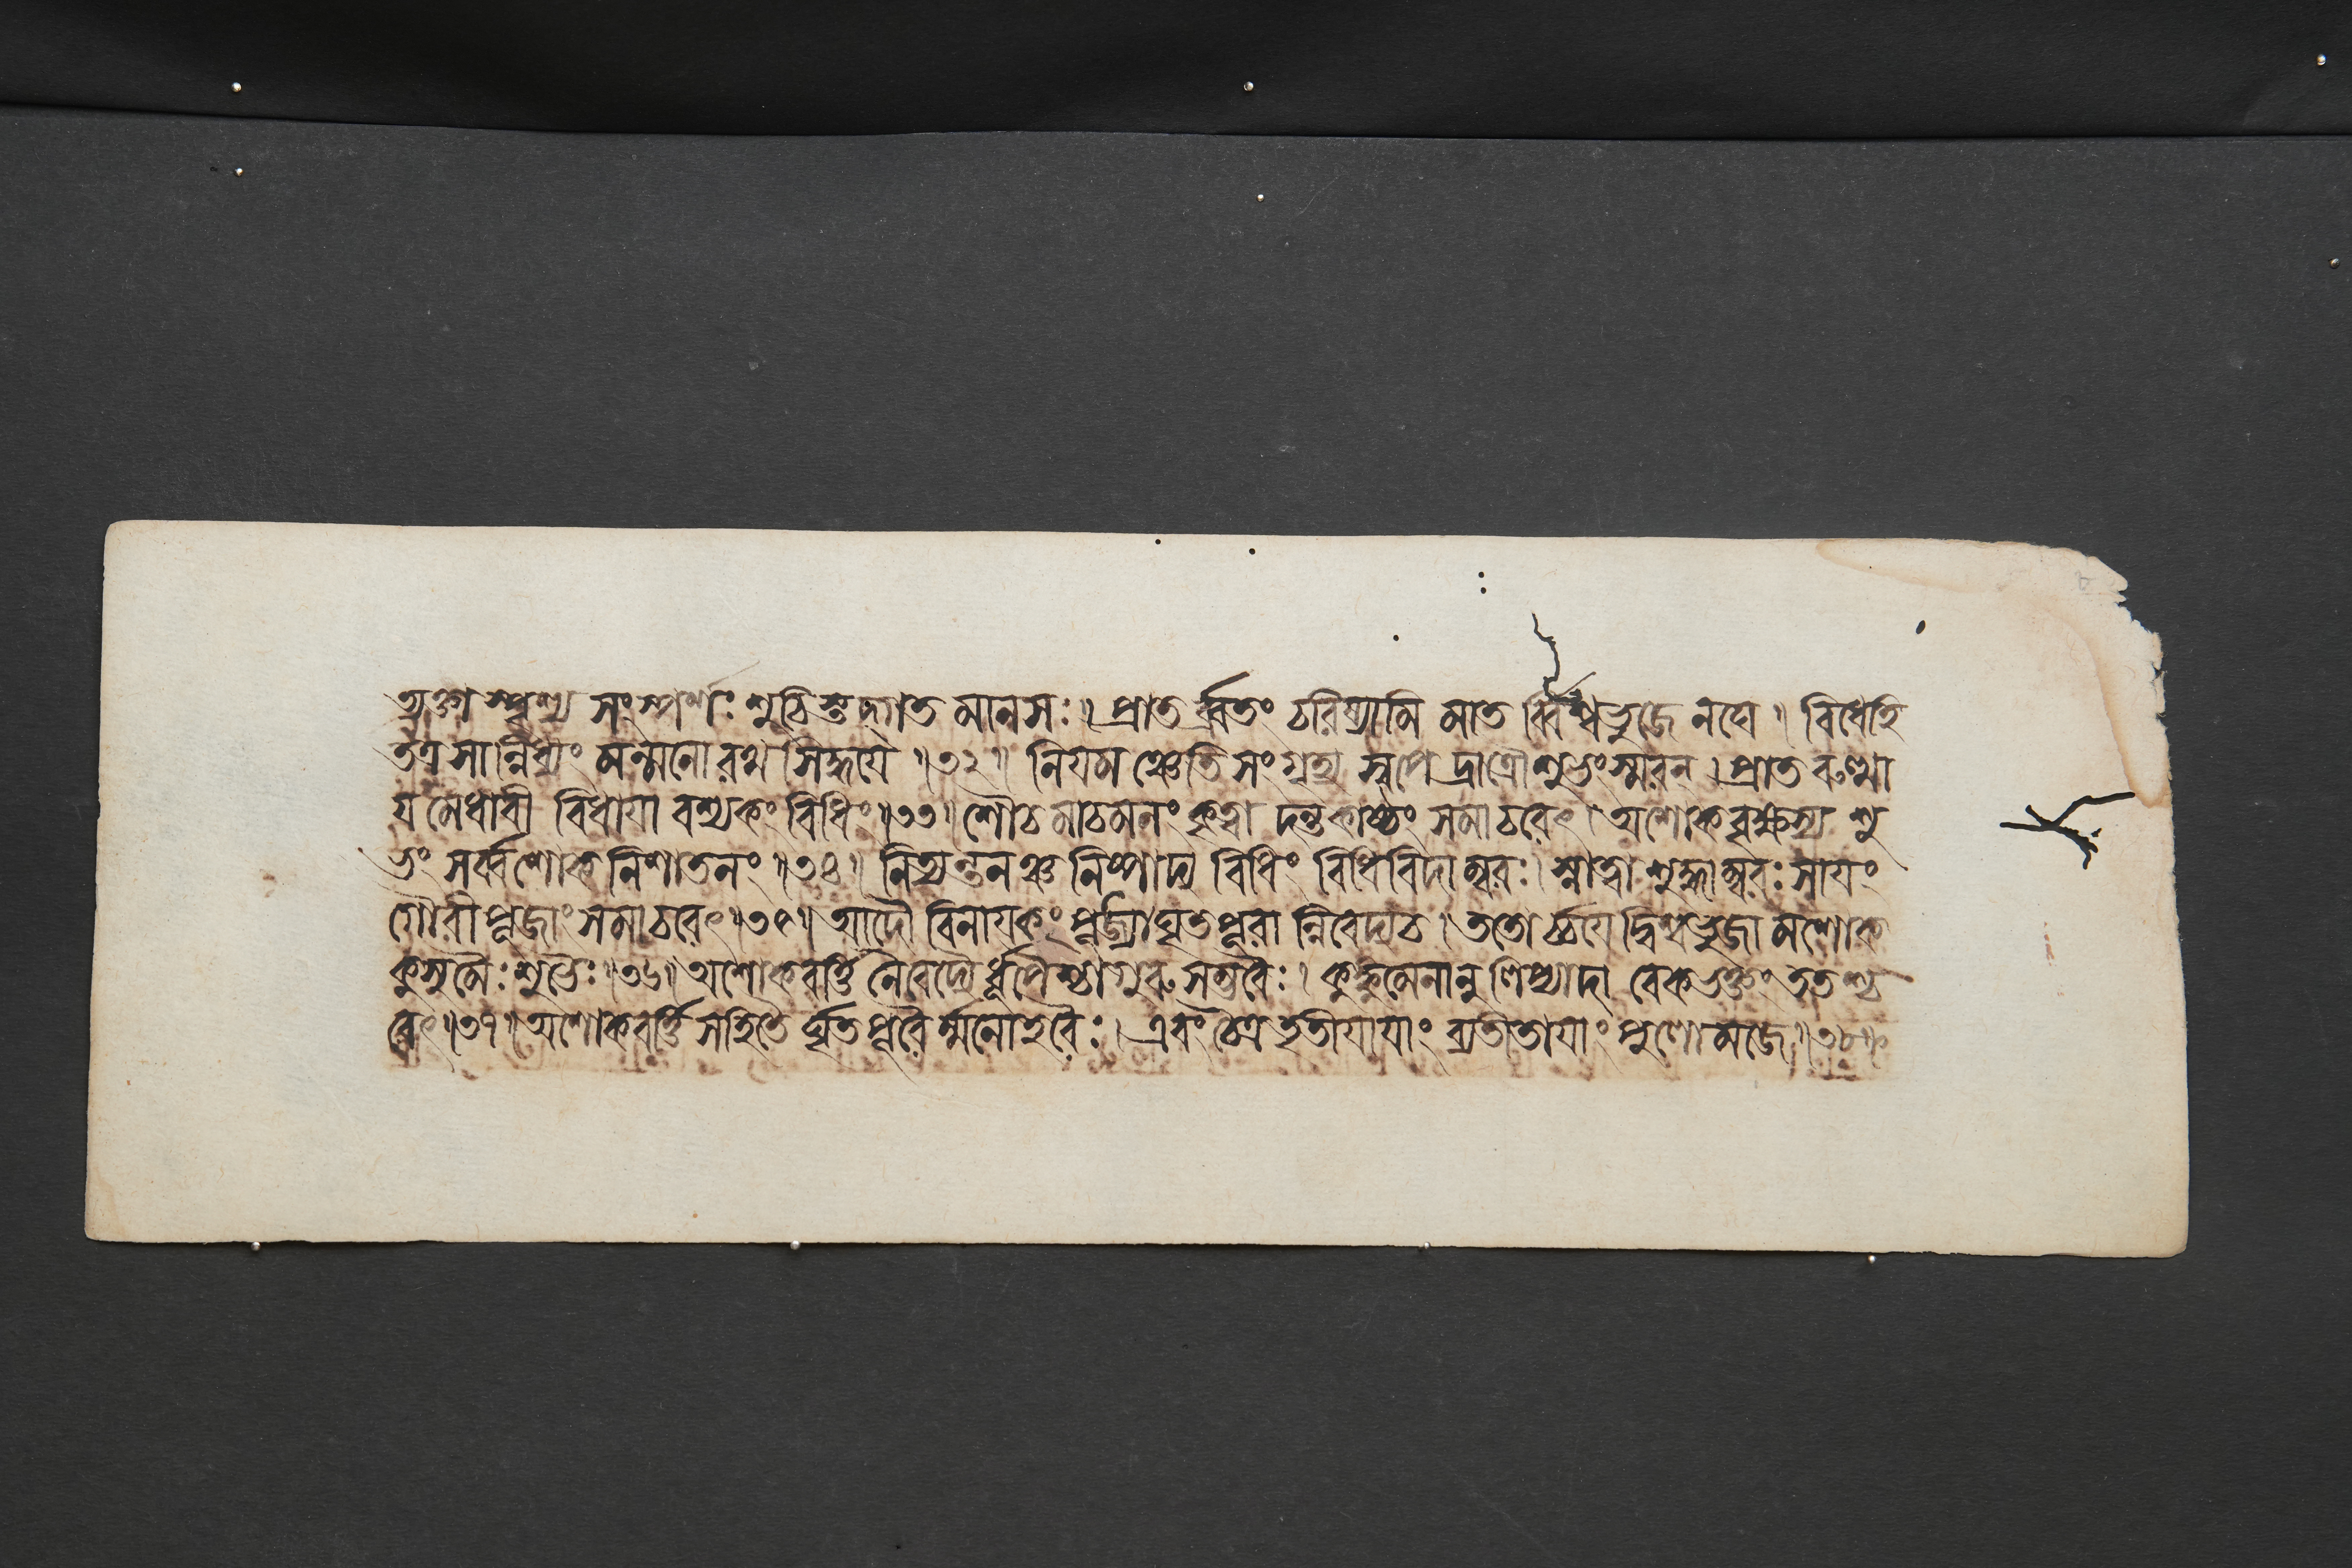 ত্যক্তাস্পৃশ্য সংস্পর্শঃ শুচিস্তদ্গত মানসঃ ॥ প্রাতর্ব্রতং চরিষ্যামি মাতর্ব্বিশ্বভুজে নঘে । বিধেহি
তত্র সান্নিধ্যং মন্মনোরথ সিদ্ধয়ে ॥৩২॥ নিয়মঞ্চেতি সংগৃহ্য স্বপেদ্রাত্রৌ শুভং স্মরন্ । প্রাতরুত্থা
য় মেধাবী বিধায়াবশ্যকং বিধিং ॥৩৩॥ শৌচমাচমনং কৃত্বা দন্তকাষ্ঠং সমাচরেৎ । অশোকবৃক্ষস্য শু
ভং সর্ব্বশোক নিশাতনং ॥৩৪॥ নিত্যন্তনঞ্চ নিষ্পাদ্য বিধিং বিধিবিদাম্বরঃ । স্নাত্বা শুদ্ধাম্বরঃ সায়ং
গৌরীপূজাং সমাচরেৎ ॥৩৫॥ আদৌ বিনায়কং পূজ্য ঘৃতপূরান্নিবেদ্য চ । ততোর্চ্চয়েদ্বিশ্বভুজামশোক
কুসুমৈঃ শুভৈঃ ॥৩৬॥ অশোকবর্ত্তি নৈবেদ্যৈর্ধূপৈশ্চাগুরু সম্ভবৈঃ । কুঙ্কুমেনানুলিপ্যাদাবেকভক্তং ততশ্চ
রেৎ ॥৩৭॥ অশোকবর্ত্তি সহিতৈর্ঘৃতপূরৈর্ম্মনোহরৈঃ । এবং চৈত্রতৃতীয়ায়াং ব্যতীতায়াং পুলোমজে ॥৩৮॥